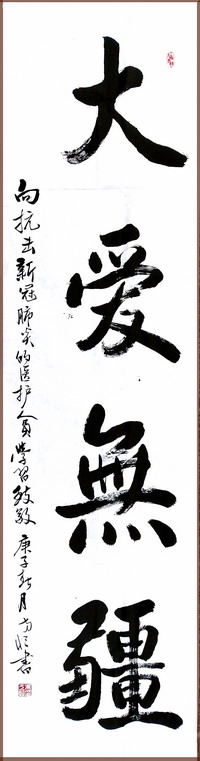 大爱無疆
向抗击新冠肺炎的医护人员学习致敬 庚子新月